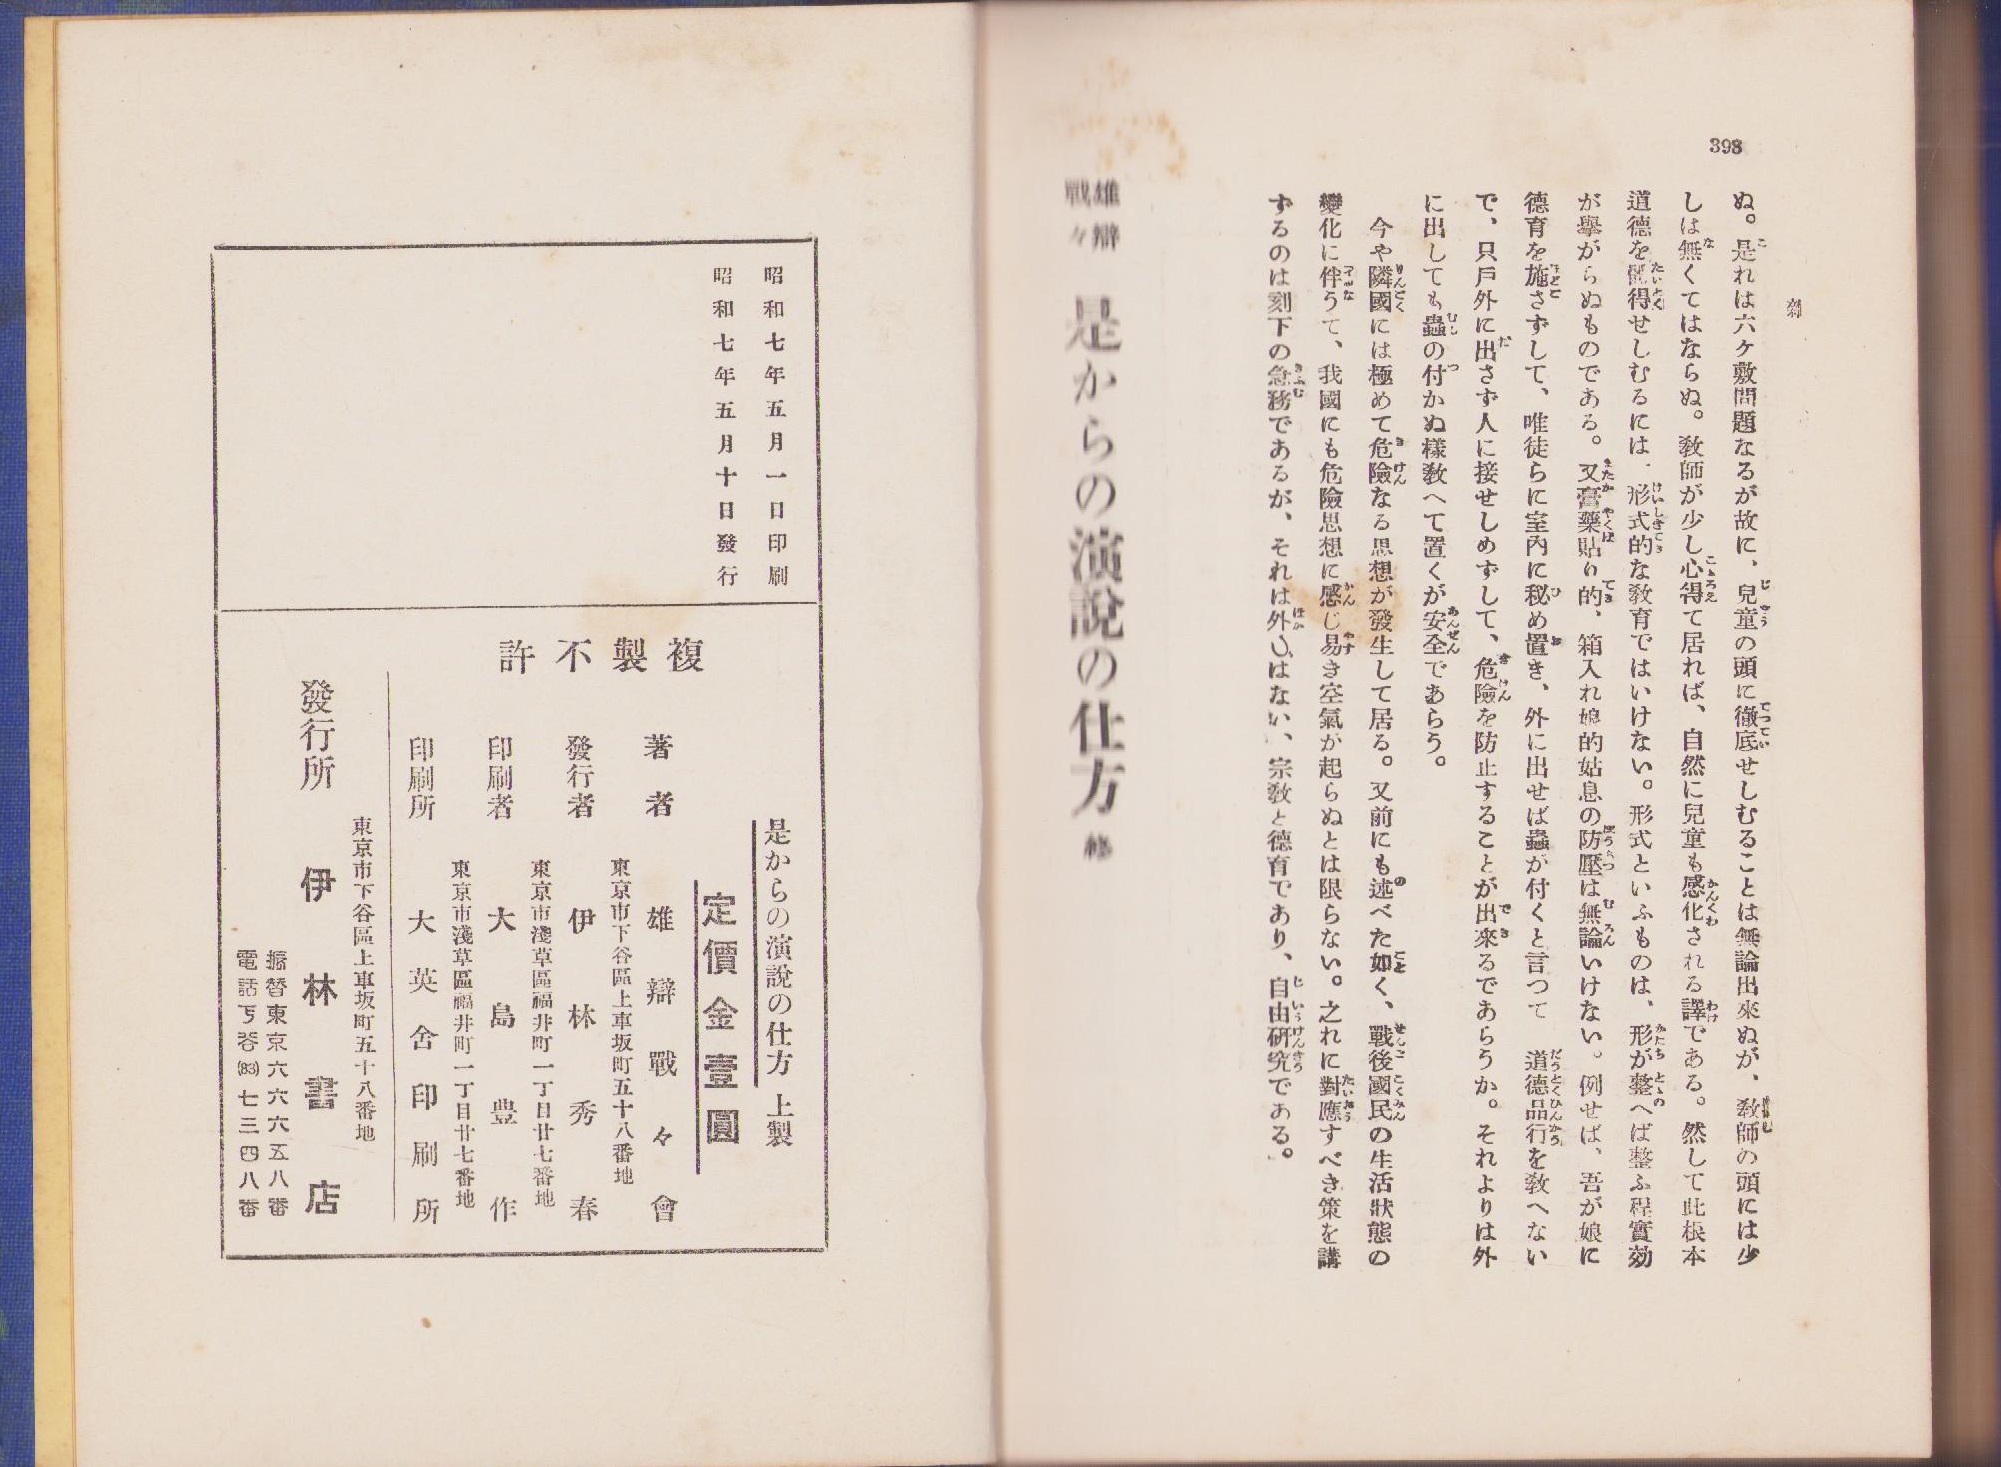 398
ぬ。是れは六ケ敷問題なるが故に、兒童の頭に徹底せしむることは無論出來ぬが、敎師の頭には少
しは無くてはならぬ。敎師が少し心得て居れば、自然に兒童も感化される譯である。然して此根本
道德を體得せしむるには、形式的な敎育ではいけない。形式といふものは、形が整へば整ふ程實効
が擧がらぬものである。又膏藥貼り的、箱入れ娘的姑息の防壓は無論いけない。例せば、吾が娘に
德育を施さずして、唯徒らに室內に秘め置き、外に出せば蟲が付くと言つて 道德品行を敎へない
で、只戶外に出さず人に接せしめずして、危險を防止することが出來るであらうか。それよりは外
に出しても蟲の付かぬ樣敎へて置くが安全であらう。
今や隣國には極めて危險なる思想が發生して居る。又前にも述べた如く、戰後國民の生活狀態の
變化に伴うて、我國にも危險思想に感じ易き空氣が起らぬとは限らない。之れに對應すべき策を講
ずるのは刻下の急務であるが、それは外ではない、宗敎と德育であり、自由硏究である。
雄辯
戰々
是からの演說の仕方 終
昭和七年五月一日印刷
昭和七年五月十日發行
複製不許
是からの演說の仕方 上製
定價金壹圓
著者 雄辯戰々會
東京市下谷區上車坂町五十八番地
發行者 伊林秀春
東京市淺草區福井町一丁目廿七番地
印刷者 大島豊作
東京市淺草區福井町一丁目廿七番地
印刷所 大英舍印刷所
東京市下谷區上車坂町五十八番地
發行所 伊林書店
振替東京六六六五八番
電話下谷(83)七三四八番